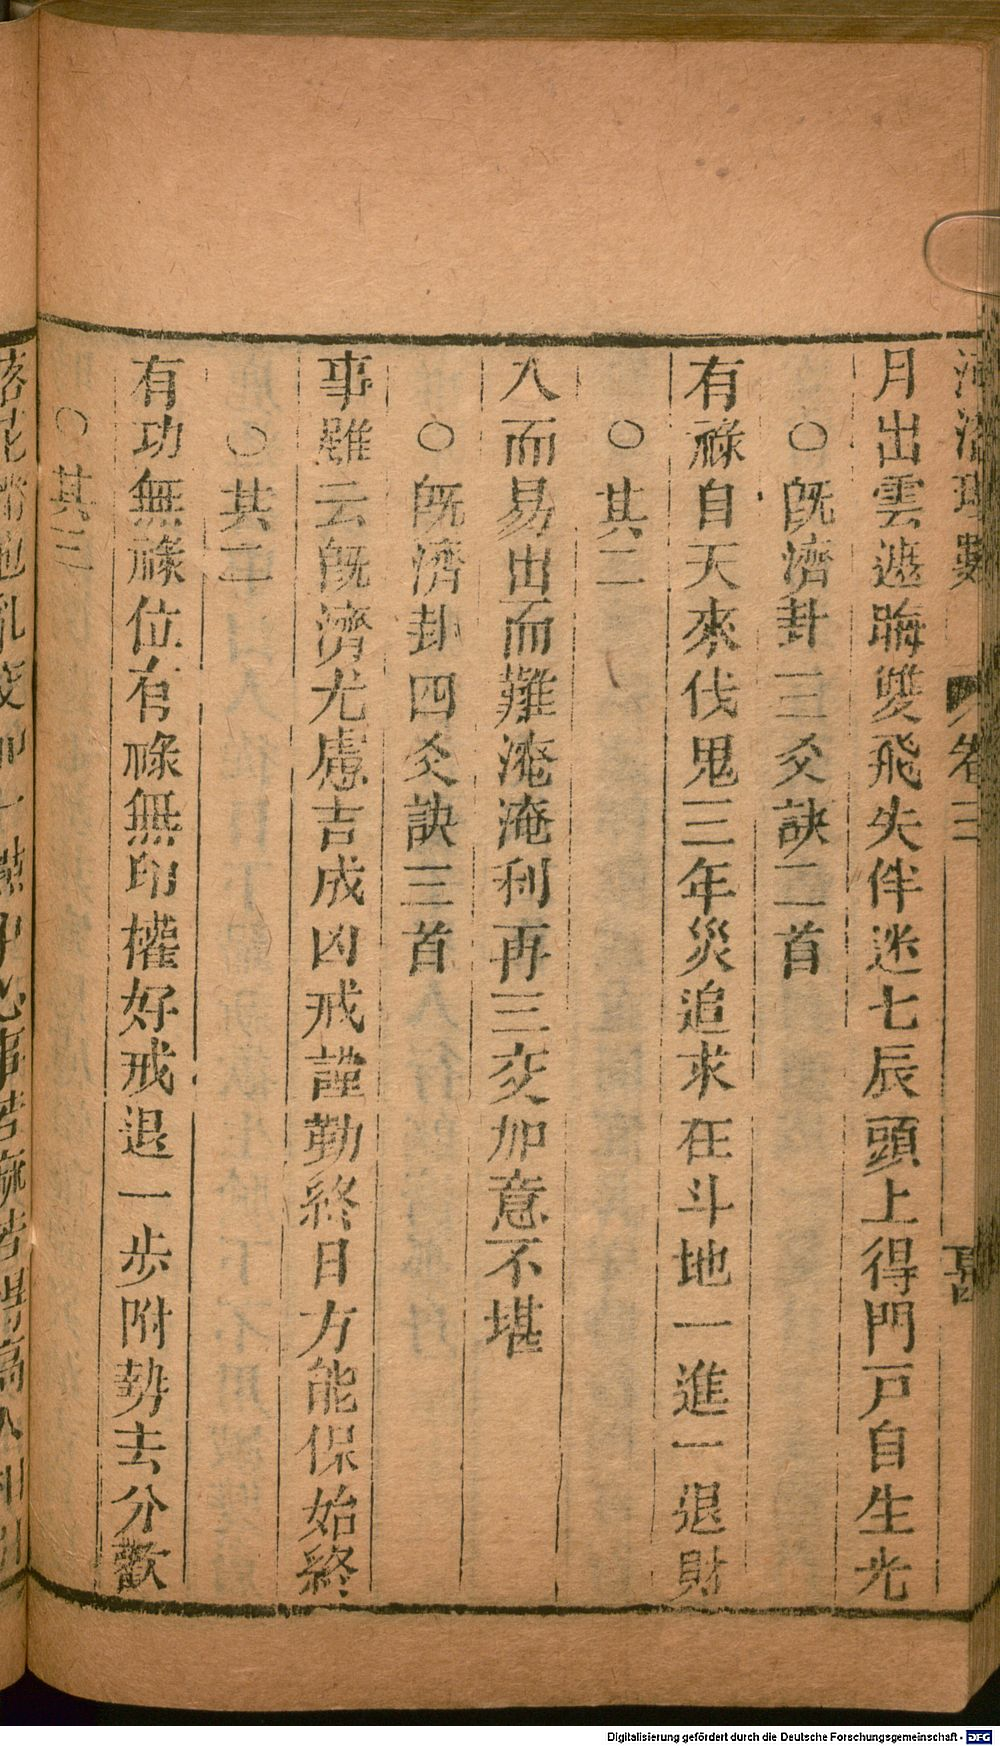 河洛理數 卷三
月出雲遮晦雙飛失伴迷七辰頭上得門戸自生光
○旣濟卦三爻訣二首
有祿自天來伐鬼三年災追求在斗地一進一退財
○其二
入而易出而難淹淹利再三交加意不堪
○旣濟卦四爻訣三首
事雖云旣濟尤慮吉成凶戒謹勤終日方能保始終
○其二
有功無祿位有祿無印權好戒退一步附勢去分歡
○其三
Digitalisierung gefördert durch die Deutsche Forschungsgemeinschaft - DFG